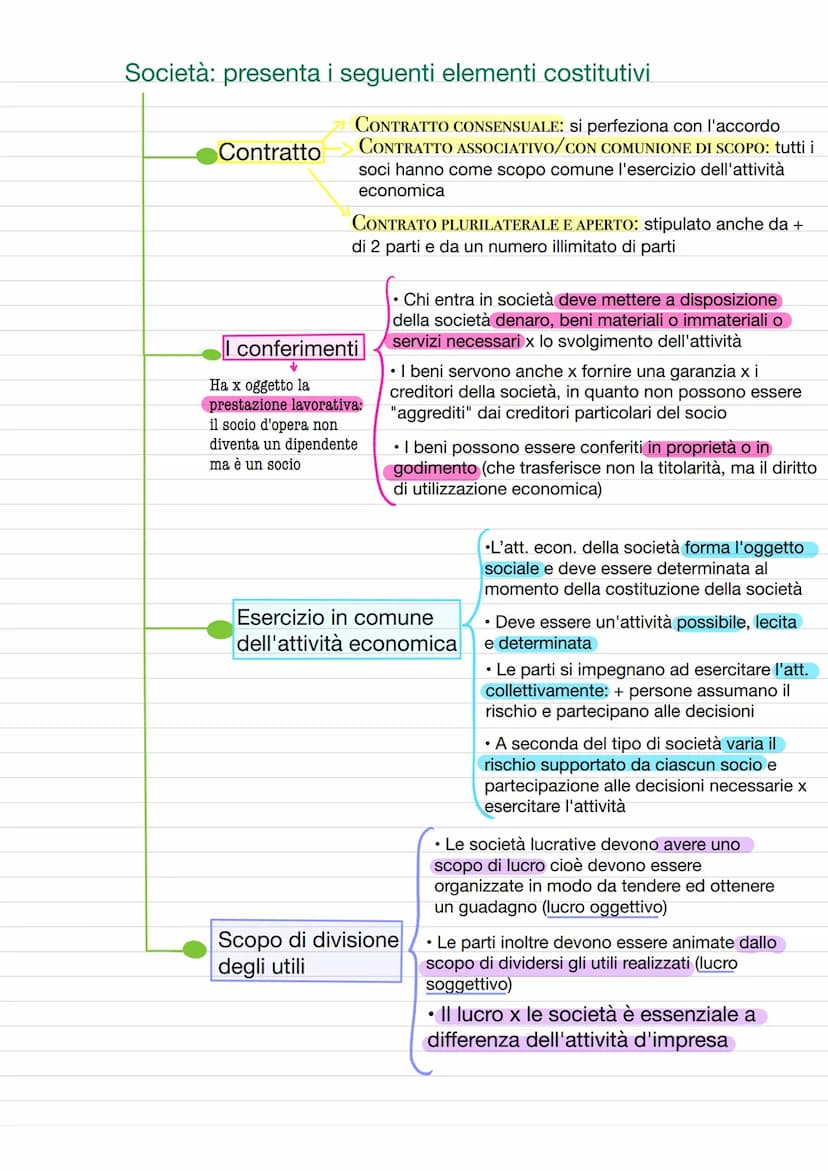 Società: presenta i seguenti elementi costitutivi
Contratto
CONTRATTO CONSENSUALE: si perfeziona con l'accordo
CONTRATTO ASSOCIATIVO/CON COMUNIONE DI SCOPO: tutti i
soci hanno come scopo comune l'esercizio dell'attività
economica
CONTRATO PLURILATERALE E APERTO: stipulato anche da +
di 2 parti e da un numero illimitato di parti
I conferimenti
Ha x oggetto la
prestazione lavorativa:
il socio d'opera non
diventa un dipendente
ma è un socio
• Chi entra in società deve mettere a disposizione
della società denaro, beni materiali o immateriali o
servizi necessari x lo svolgimento dell'attività
• I beni servono anche x fornire una garanzia x i
creditori della società, in quanto non possono essere
"aggrediti" dai creditori particolari del socio
• I beni possono essere conferiti in proprietà o in
godimento (che trasferisce non la titolarità, ma il diritto
di utilizzazione economica)
Esercizio in comune
dell'attività economica
•L'att. econ. della società forma l'oggetto
sociale e deve essere determinata al
momento della costituzione della società
• Deve essere un'attività possibile, lecita
e determinata
• Le parti si impegnano ad esercitare l'att.
collettivamente: + persone assumano il
rischio e partecipano alle decisioni
• A seconda del tipo di società varia il
rischio supportato da ciascun socio e
partecipazione alle decisioni necessarie x
esercitare l'attività
Scopo di divisione
degli utili
• Le società lucrative devono avere uno
scopo di lucro cioè devono essere
organizzate in modo da tendere ed ottenere
un guadagno (lucro oggettivo)
• Le parti inoltre devono essere animate dallo
scopo di dividersi gli utili realizzati (lucro
soggettivo)
• Il lucro x le società è essenziale a
differenza dell'attività d'impresa